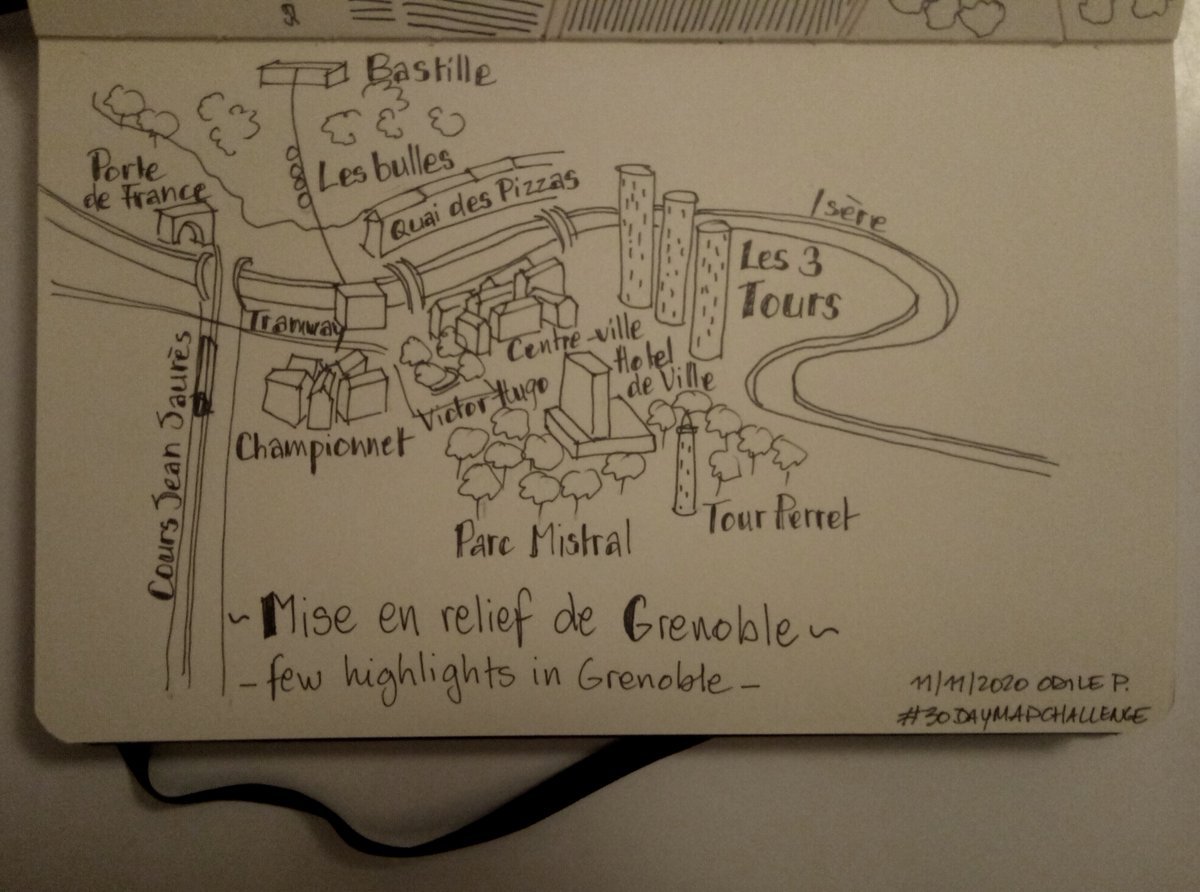 Bastille
Les bulles
Porte
de France
Quai des Pizzas
Isère
Les 3
Tours
Tramway
Centre-ville
Hotel
de Ville
Victor Hugo
Championnet
Cours Jean Jaurès
Parc Mistral
Tour Perret
~ Mise en relief de Grenoble ~
- few highlights in Grenoble -
11/11/2020 ODILE P.
#30DAYMAPCHALLENGE